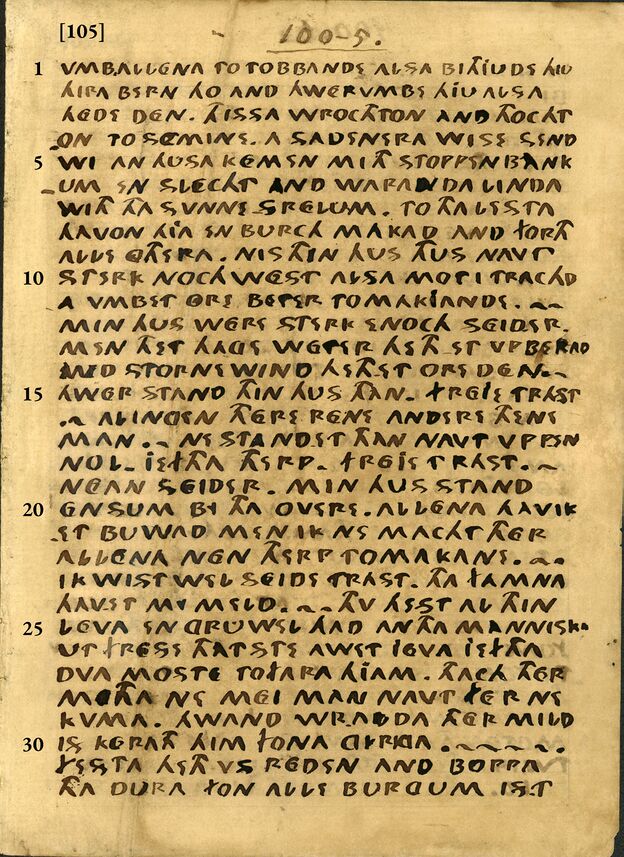 [105]
100-5.
1 VMB.ALLENA TO TOBBANDE ALSA BIHJUDE HJU
HIRA BERN HO AND HWERVMBE HJU ALSA
HEDE DEN. THISSA WROCHTON AND THOCHT
ON TO SEMINE. A SADENERA WISE SEND
5 WI AN HUSA KEMEN MITH STOPPEN BANK
UM EN SLECHT AND WARANDA LINDA
WITH THA SVNNE STRELUM. TO THA LESTA
HAVON HJA EN BURCH MAKAD AND FORTH
ALLE OTHERA. NIS THIN HUS THUS NAVT
10 STERK NOCH WEST ALSA MOT I TRACHD
A VMBET ORE BETER TO MAKJANDE.
MIN HUS WERE STERK ENOCH SEIDER.
MEN THET HAGE WETER HETH ET VP BERAD
AND STORNEWIND HETH ET ORE DEN.
15 HWER STAND THIN HUS THAN. FREJE TRAST
. ALINGEN THERE RENE ANDERE THENE
MAN. NE STANDET THAN NAVT VPPEN
NOL. JEFTHA THERP. FREJE TRHST.
NEAN SEIDER. MIN HUS STAND
20 ENSUM BI THA OVERE. ALLENA HAV IK
ET BUWAD MEN IK NE MACHT THER
ALLENA NEN THERP TO MAKANE.
IK WIST WEL SEIDE TRAST. THA FAMNA
HAVET MY MELD. THV HEST AL THIN
25 LEVA EN GRUWEL HAD AN THA MANNISKA
UT FRESE THATSTE AWET JEVA JEFTHA
DVA MOSTE TO FARA HJAM. THACH THER
MITHA NE MEI MAN NAVT FER NE
KVMA. HWAND WRALDA THER MILD
30 IS KERATH HIM FONA GIRIGA.
FESTA HETH VS REDEN AND BOPPA
THA DURA FON ALLE BURGUM IST